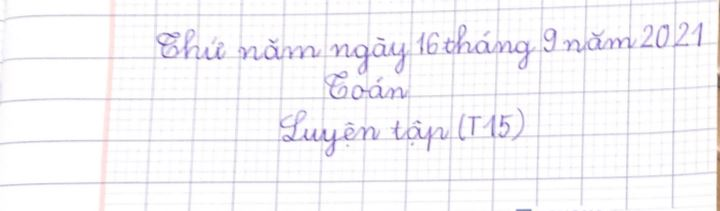 Thứ năm ngày 16 tháng 9 năm 2021
Toán
Luyện tập (T15)